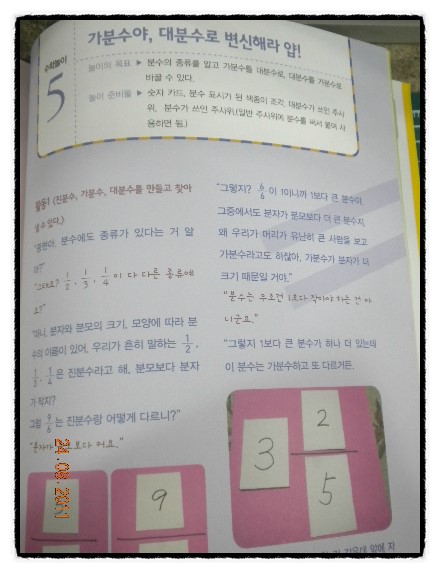 수학놀이
5
가분수야, 대분수로 변신해라 얍!
놀이의 목표 ▶ 분수의 종류를 알고 가분수를 대분수로, 대분수를 가분수로
바꿀 수 있다.
놀이 준비물 ▶ 숫자 카드, 분수 표시가 된 색종이 조각, 대분수가 쓰인 주사
위, 분수가 쓰인 주사위(일반 주사위에 분수를 써서 붙여 사
용하면 됨.)
활동1 (진분수, 가분수, 대분수를 만들고 찾아
낼 수 있다.)
분수에도 종류가 있다는 거 알
아?"
"그래요? 1/2, 1/3, 1/4 이 다 다른 종류예
요?"
"아니, 분자와 분모의 크기, 모양에 따라 분
수의 이름이 있어. 우리가 흔히 말하는 1/2,
1/3, 1/4은 진분수라고 해. 분모보다 분자
가 작지?
그럼 9/6는 진분수랑 어떻게 다르니?"
"분자가 분모보다 커요."
"그렇지? 6/6이 1이니까 1보다 큰 분수야.
그중에서도 분자가 분모보다 더 큰 분수지.
왜 우리가 머리가 유난히 큰 사람을 보고
가분수라고도 하잖아. 가분수가 분자가 더
크기 때문일 거야."
"분수는 무조건 1보다 작아야 하는 건 아
니군요."
"그렇지 1보다 큰 분수가 하나 더 있는데
이 분수는 가분수하고 또 다르거든.
9
3
2
5
24.09.2011